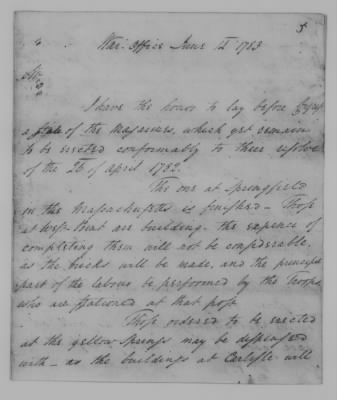 War Office June 12 1783
Sir
I have the honor to lay before
a State of the Magazines, which yet remain
to be erected conformably to their resolve
of the of April 1782.
The one at Springfield
in the Massachusetts is finished – Those
at West Point are building – the expence of
completing them will not be considerable,
as the bricks will be made, and the principal
part of the labour be performed by the Troops
who are stationed at that post
Those ordered to be erected
at the Yellow Springs may be dispensed
with – as the buildings at Carlisle will